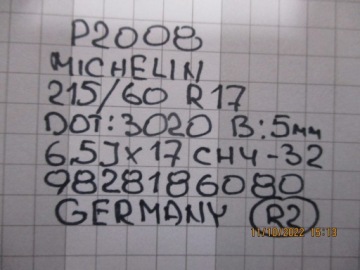 P2008
MICHELIN
215/60 R17
DOT:3020 B:5мм
6.5Jx17 CH4-32
9828186080
GERMANY R2
11/10/2022 15:13